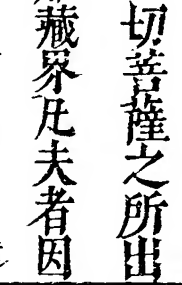 切菩薩之所出
藏界凡夫者因